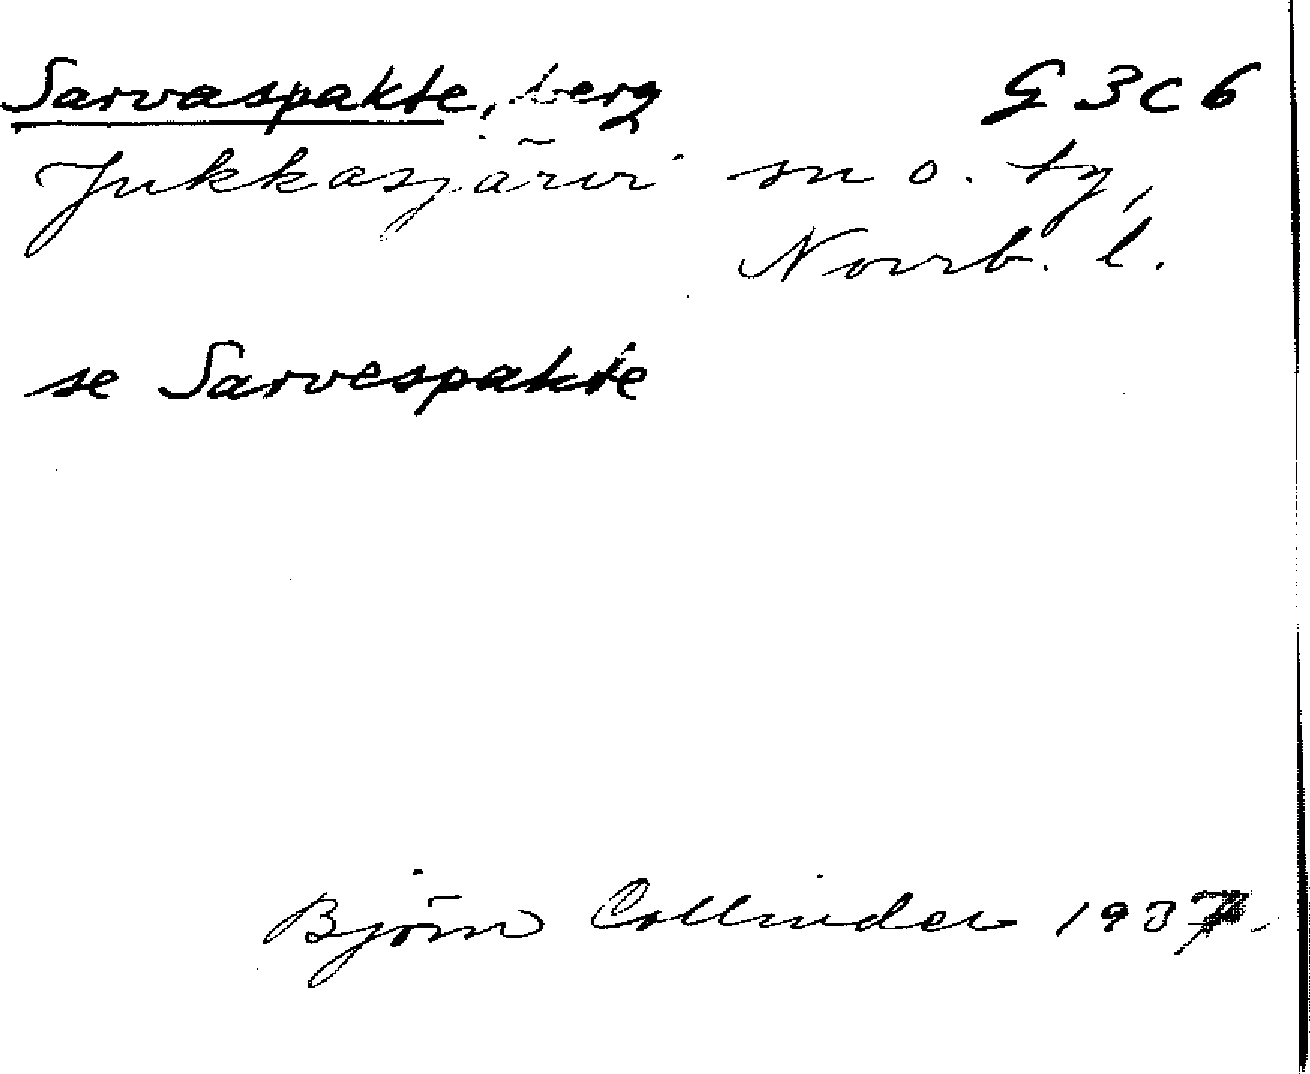 Sarvaspakte, berg G 3 C 6
Jukkasjärvi sn o. tg,
Norrb. l.
se Sarvespakte
Björn Collinder 1937.